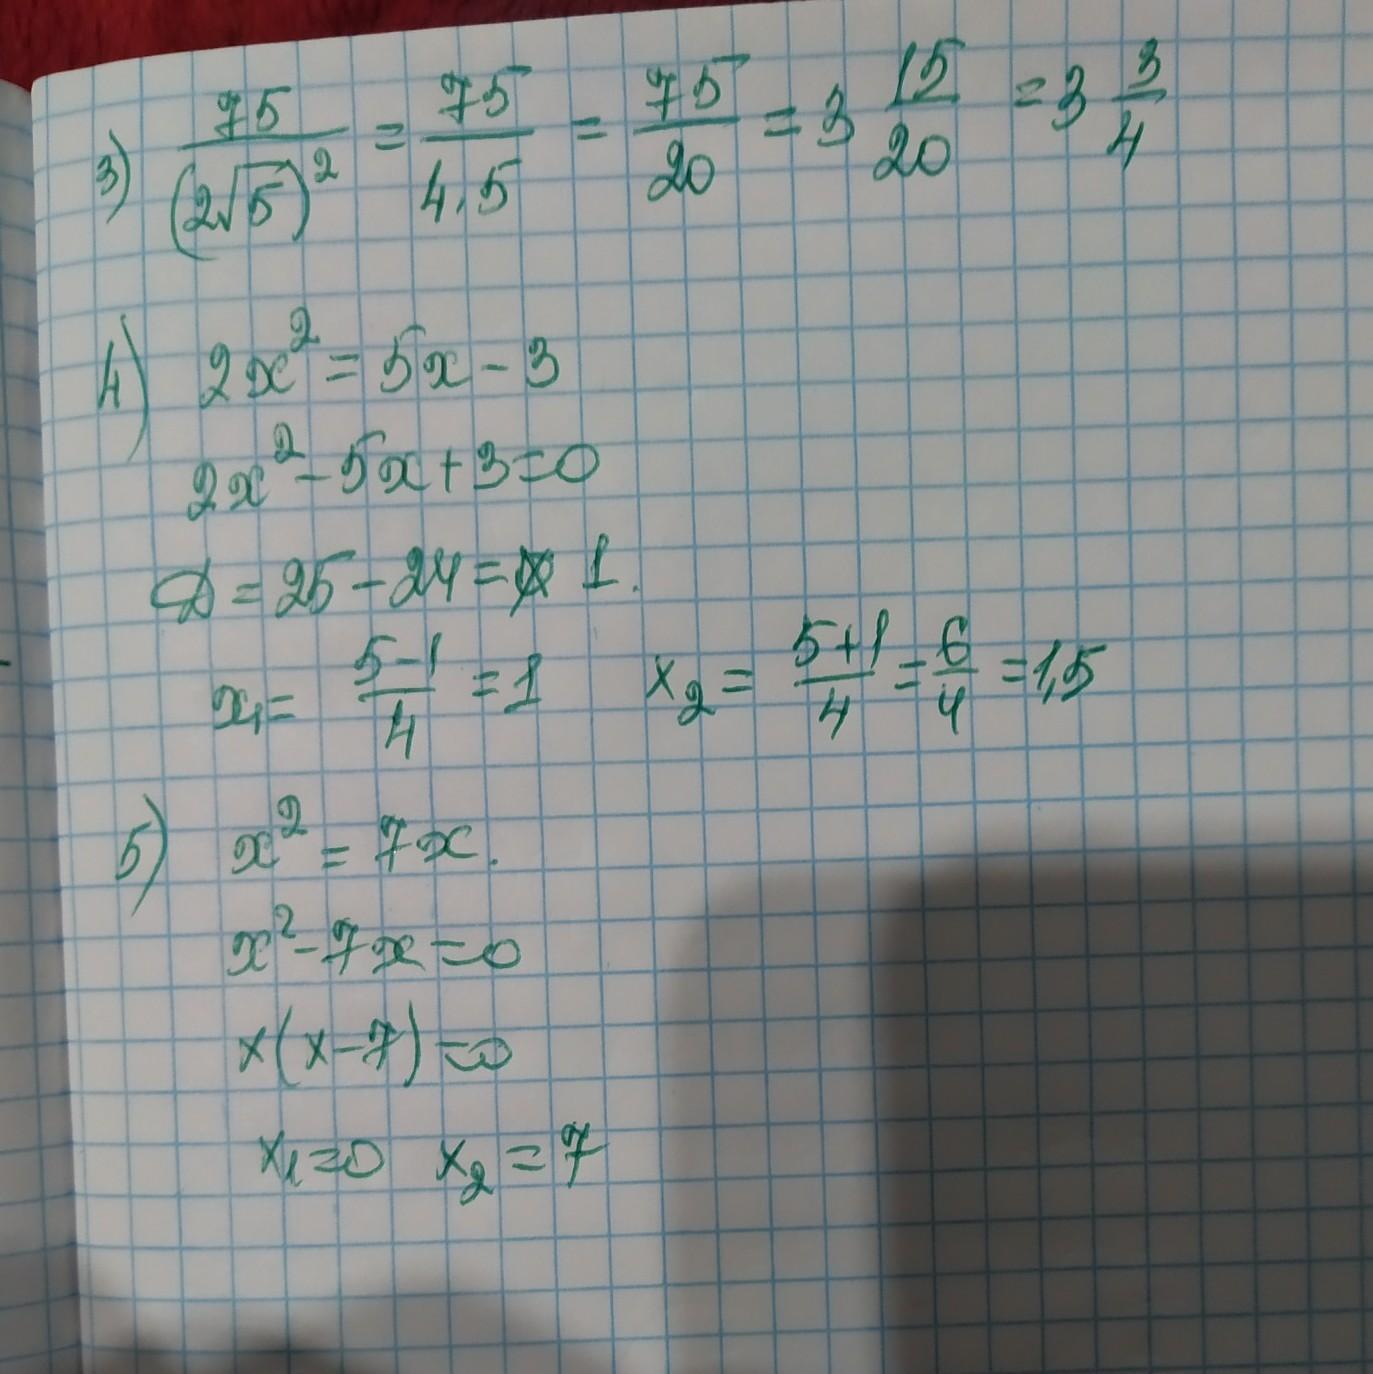 3) 75/(2√5)² = 75/4.5 = 75/20 = 3 15/20 = 3 3/4
4) 2x² = 5x - 3
2x² - 5x + 3 = 0
D = 25 - 24 = 1.
x₁ = (5-1)/4 = 1 x₂ = (5+1)/4 = 6/4 = 1,5
5) x² = 7x.
x² - 7x = 0
x(x-7) = 0
x₁ = 0 x₂ = 7